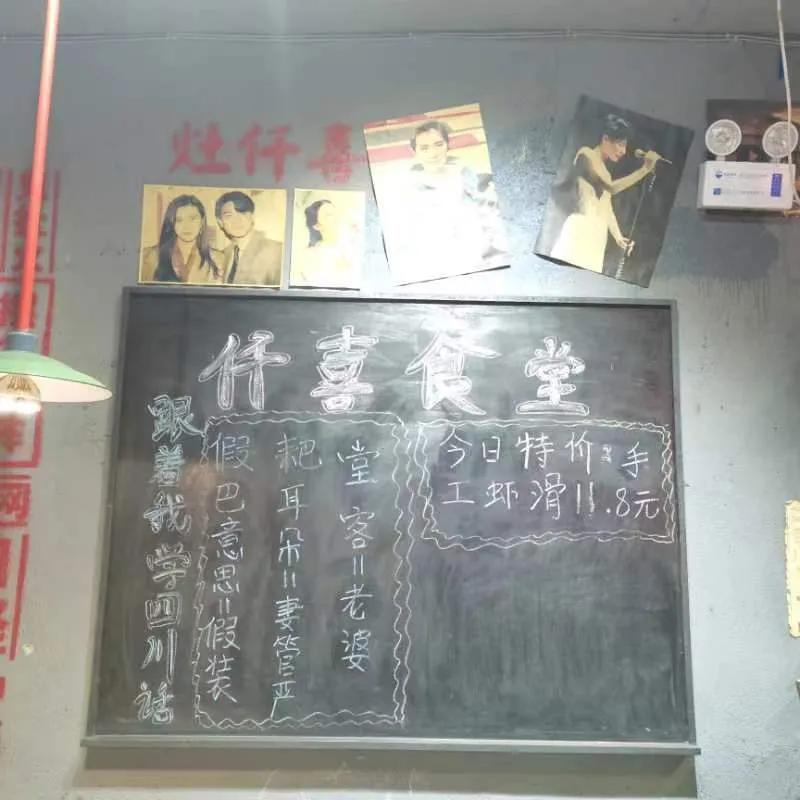 灶仟喜
仟喜食堂
跟着我学四川话
假巴意思=假装
耙耳朵=妻管严
堂客=老婆
今日特价:手
工虾滑11.8元